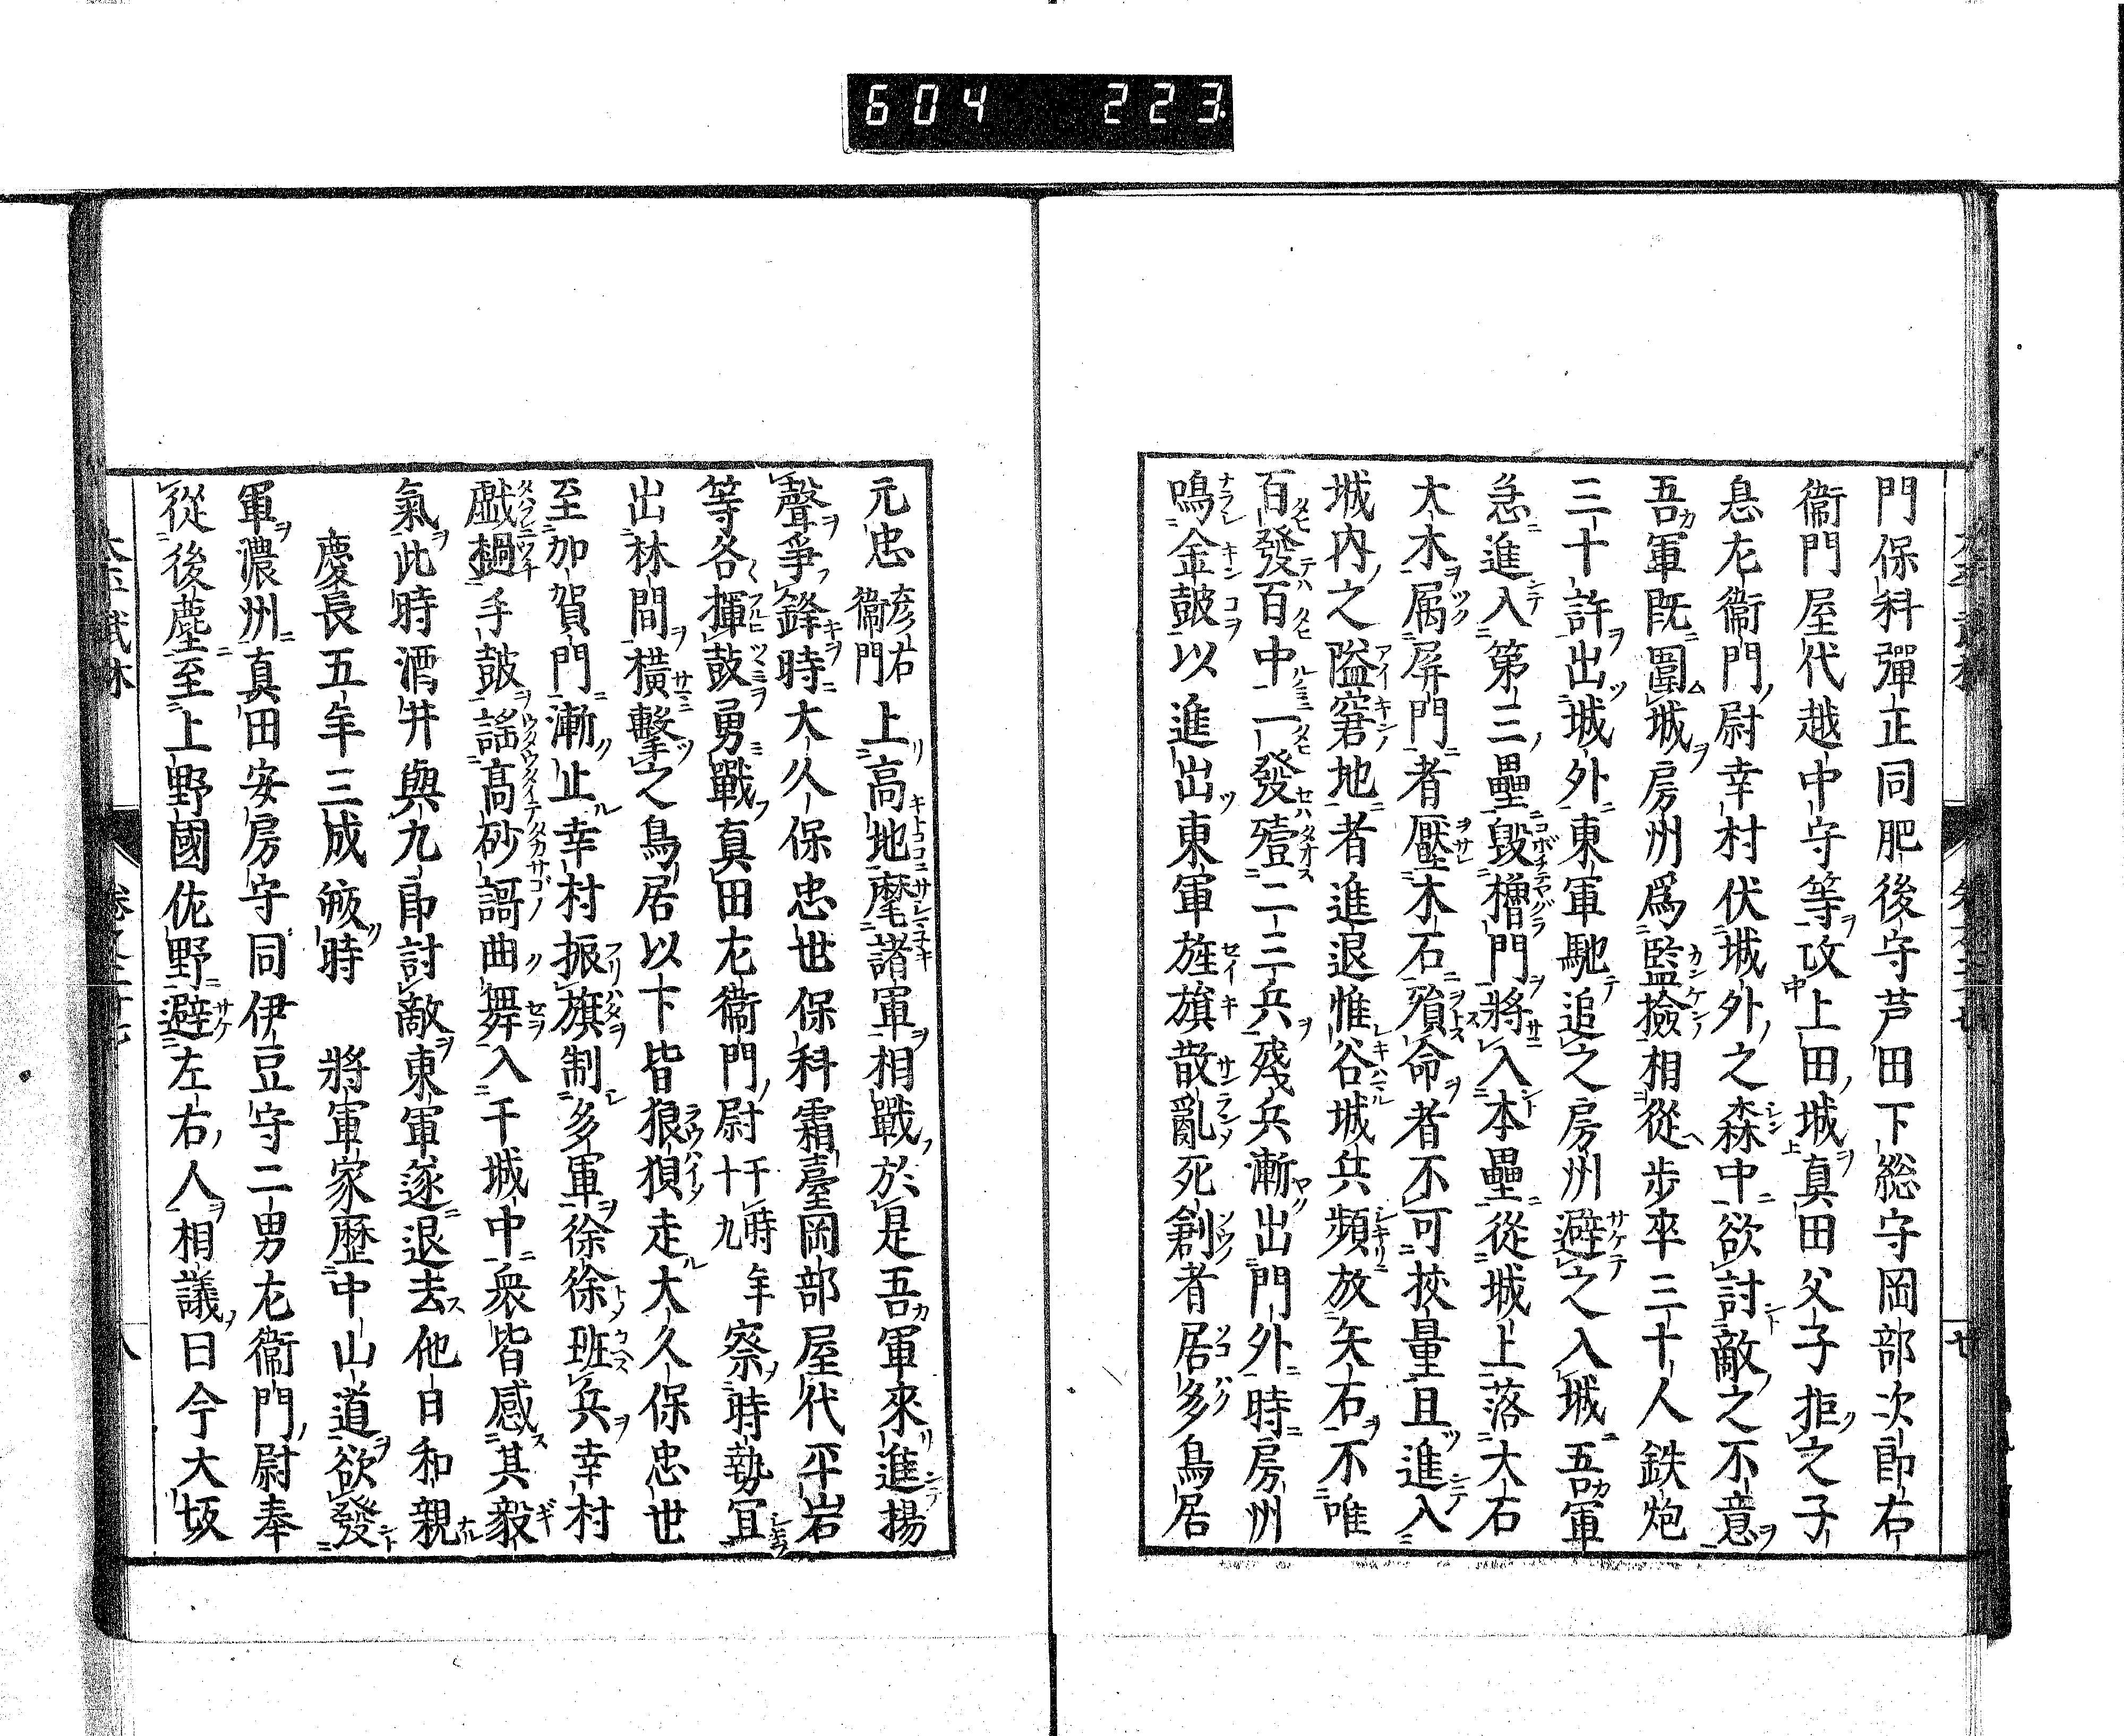 604 223
門保科彈正同肥後守芦田下総守岡部次郎右
衞門屋代越中守等攻上田城真田父子拒之子
息左衞門尉幸村伏城外之森中欲討敵之不意
吾軍既圍城房州爲監撿相從步卒三十人鉄炮
三十許出城外東軍馳追之房州避之入城吾軍
急進入第三壘毀櫓門將入本壘從城上落大石
大木属屏門者壓木石殞命者不可挍量且進入
城内之隘窘地者進退惟谷城兵頻放矢石不唯
百發百中一發殪二三兵殘兵漸出門外時房州
鳴金鼓以進出東軍旌旗散亂死創者居多鳥居
元忠彦右衞門上高地麾諸軍相戰於是吾軍來進揚
聲爭鋒時大久保忠世保科霜臺岡部屋代平岩
等各揮鼓勇戰真田左衞門尉于時十九年察時勢宜
出林間橫擊之鳥居以下皆狼狽走大久保忠世
至加賀門漸止幸村振旗制多軍徐徐班兵幸村
戲撾手鼓謡高砂謌曲舞入于城中衆皆感其毅
氣此時酒井與九郎討敵東軍逐退去他日和親
慶長五年三成叛時　將軍家歷中山道欲發
軍濃州真田安房守同伊豆守二男左衞門尉奉
從後塵至上野國佐野避左右人相議曰今大坂